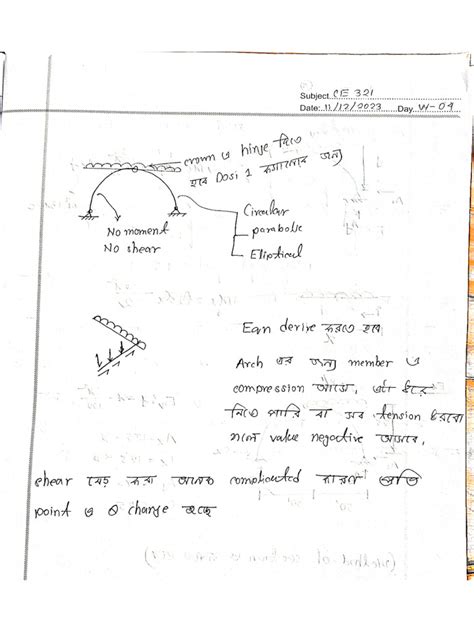 Subject CE 321
Date: 11/12/2023 Day W-09
crown এ hinge দিতে
হবে DOSI 1 কমানোর জন্য
No moment
No shear
Circular
parabolic
Eliptical
Eqn derive করতে হবে
Arch এর জন্য member এ
compression আসে, ওটা ধরে
নিতে পারি বা সব tension ধরবো
value negative আসবে,
shear বের করা অনেক complicated কারণ প্রতি
point এ θ change হচ্ছে